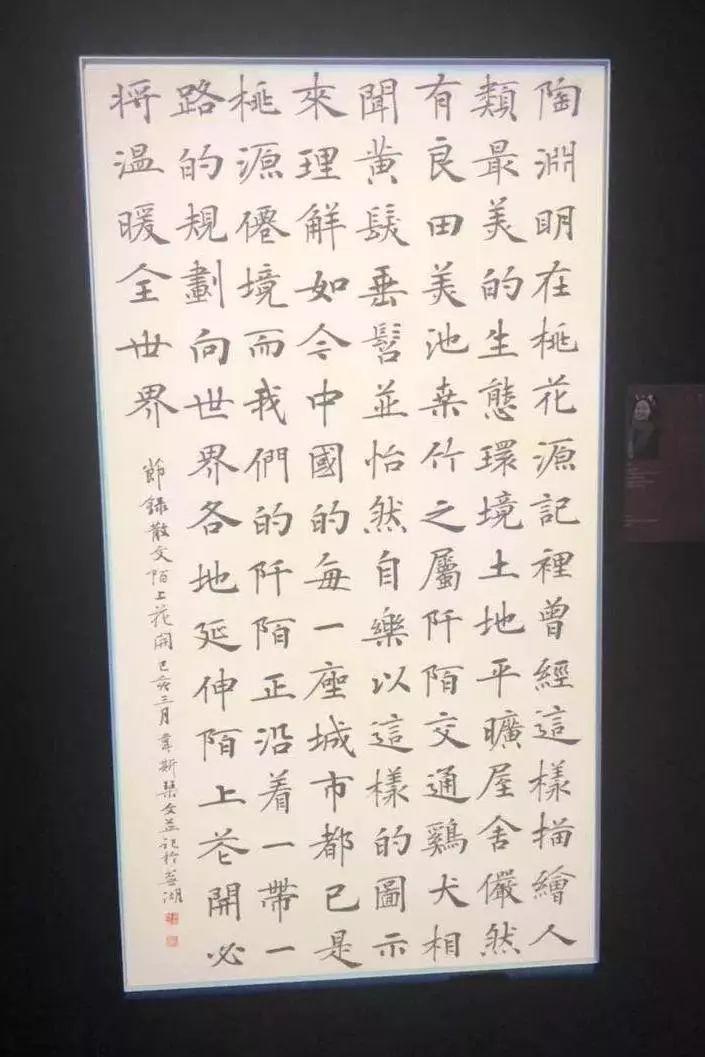 陶淵明在桃花源記裡曾經這樣描繪人
類最美的生態環境土地平曠屋舍儼然
有良田美池桒竹之屬阡陌交通鷄犬相
聞黄髮垂髫並怡然自樂以這樣的圖示
來理解如今中國的每一座城市都已是
桃源僊境而我們的阡陌正沿着一帶一
路的規劃向世界各地延伸陌上花開必
将温暖全世界
節録散文陌上花開己亥三月韋斯琹文并記於蕪湖